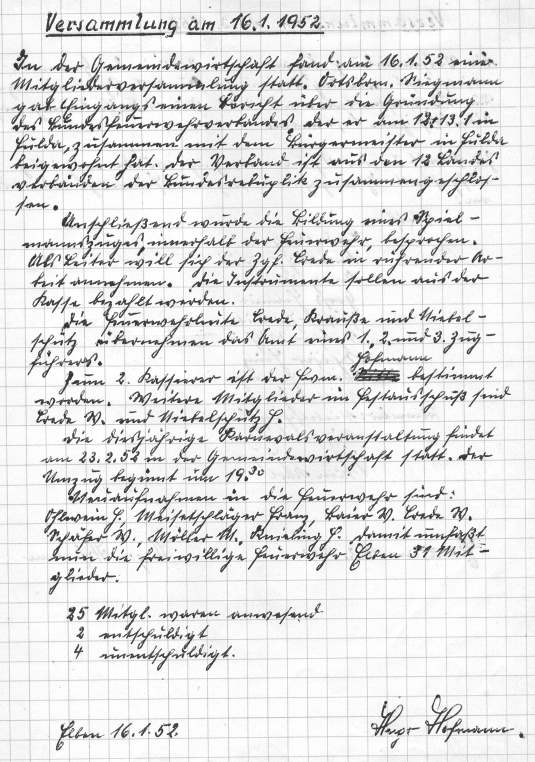 Versammlung am 16.1.1952.
In der Gemeindewirtschaft fand am 16.1.52 eine
Mitgliederversammlung statt. Ortsbrm. Siegmann
gab Eingangs einen Bericht über die Gründung
des Bundesfeuerwehrverbandes der er am 12/13.1. in
Fulda, zusammen mit dem Bürgermeister in Fulda
beigewohnt hat. Der Verband ist aus den 12 Landes
verbänden der Bundesrebuplik zusammengeschlos-
sen.
Anschließend wurde die Bildung eines Spiel-
mannszuges, innerhalb der Feuerwehr, besprochen.
Als Leiter will sich der Zgf. Brede in rührender Ar-
beit annehmen. Die Instrumente sollen aus der
Kasse bezahlt werden.
Die Feuerwehrleute Brede, Krauße und Niebel-
schütz übernehmen das Amt eines 1., 2. und 3. Zug-
führers.
Zum 2. Kassierer ist der Fwm. Hofmann bestimmt
worden. Weitere Mitglieder im Festausschuß sind
Brede W. und Niebelschütz H.
Die diesjährige Karnevalsveranstaltung findet
am 23.2.52 in der Gemeindewirtschaft statt. Der
Umzug beginnt um 19.30
Neuaufnahmen in die Feuerwehr sind:
Ohlwein H., Meisetschläger Franz, Baier W. Brede W.
Schäfer W., Möller M., Knieling H. Damit umfaßt
nun die freiwillige Feuerwehr Elben 31 Mit-
glieder.
25 Mitgl. waren anwesend
2 entschuldigt
4 unentschuldigt.
Elben 16.1.52.
Hofmann.